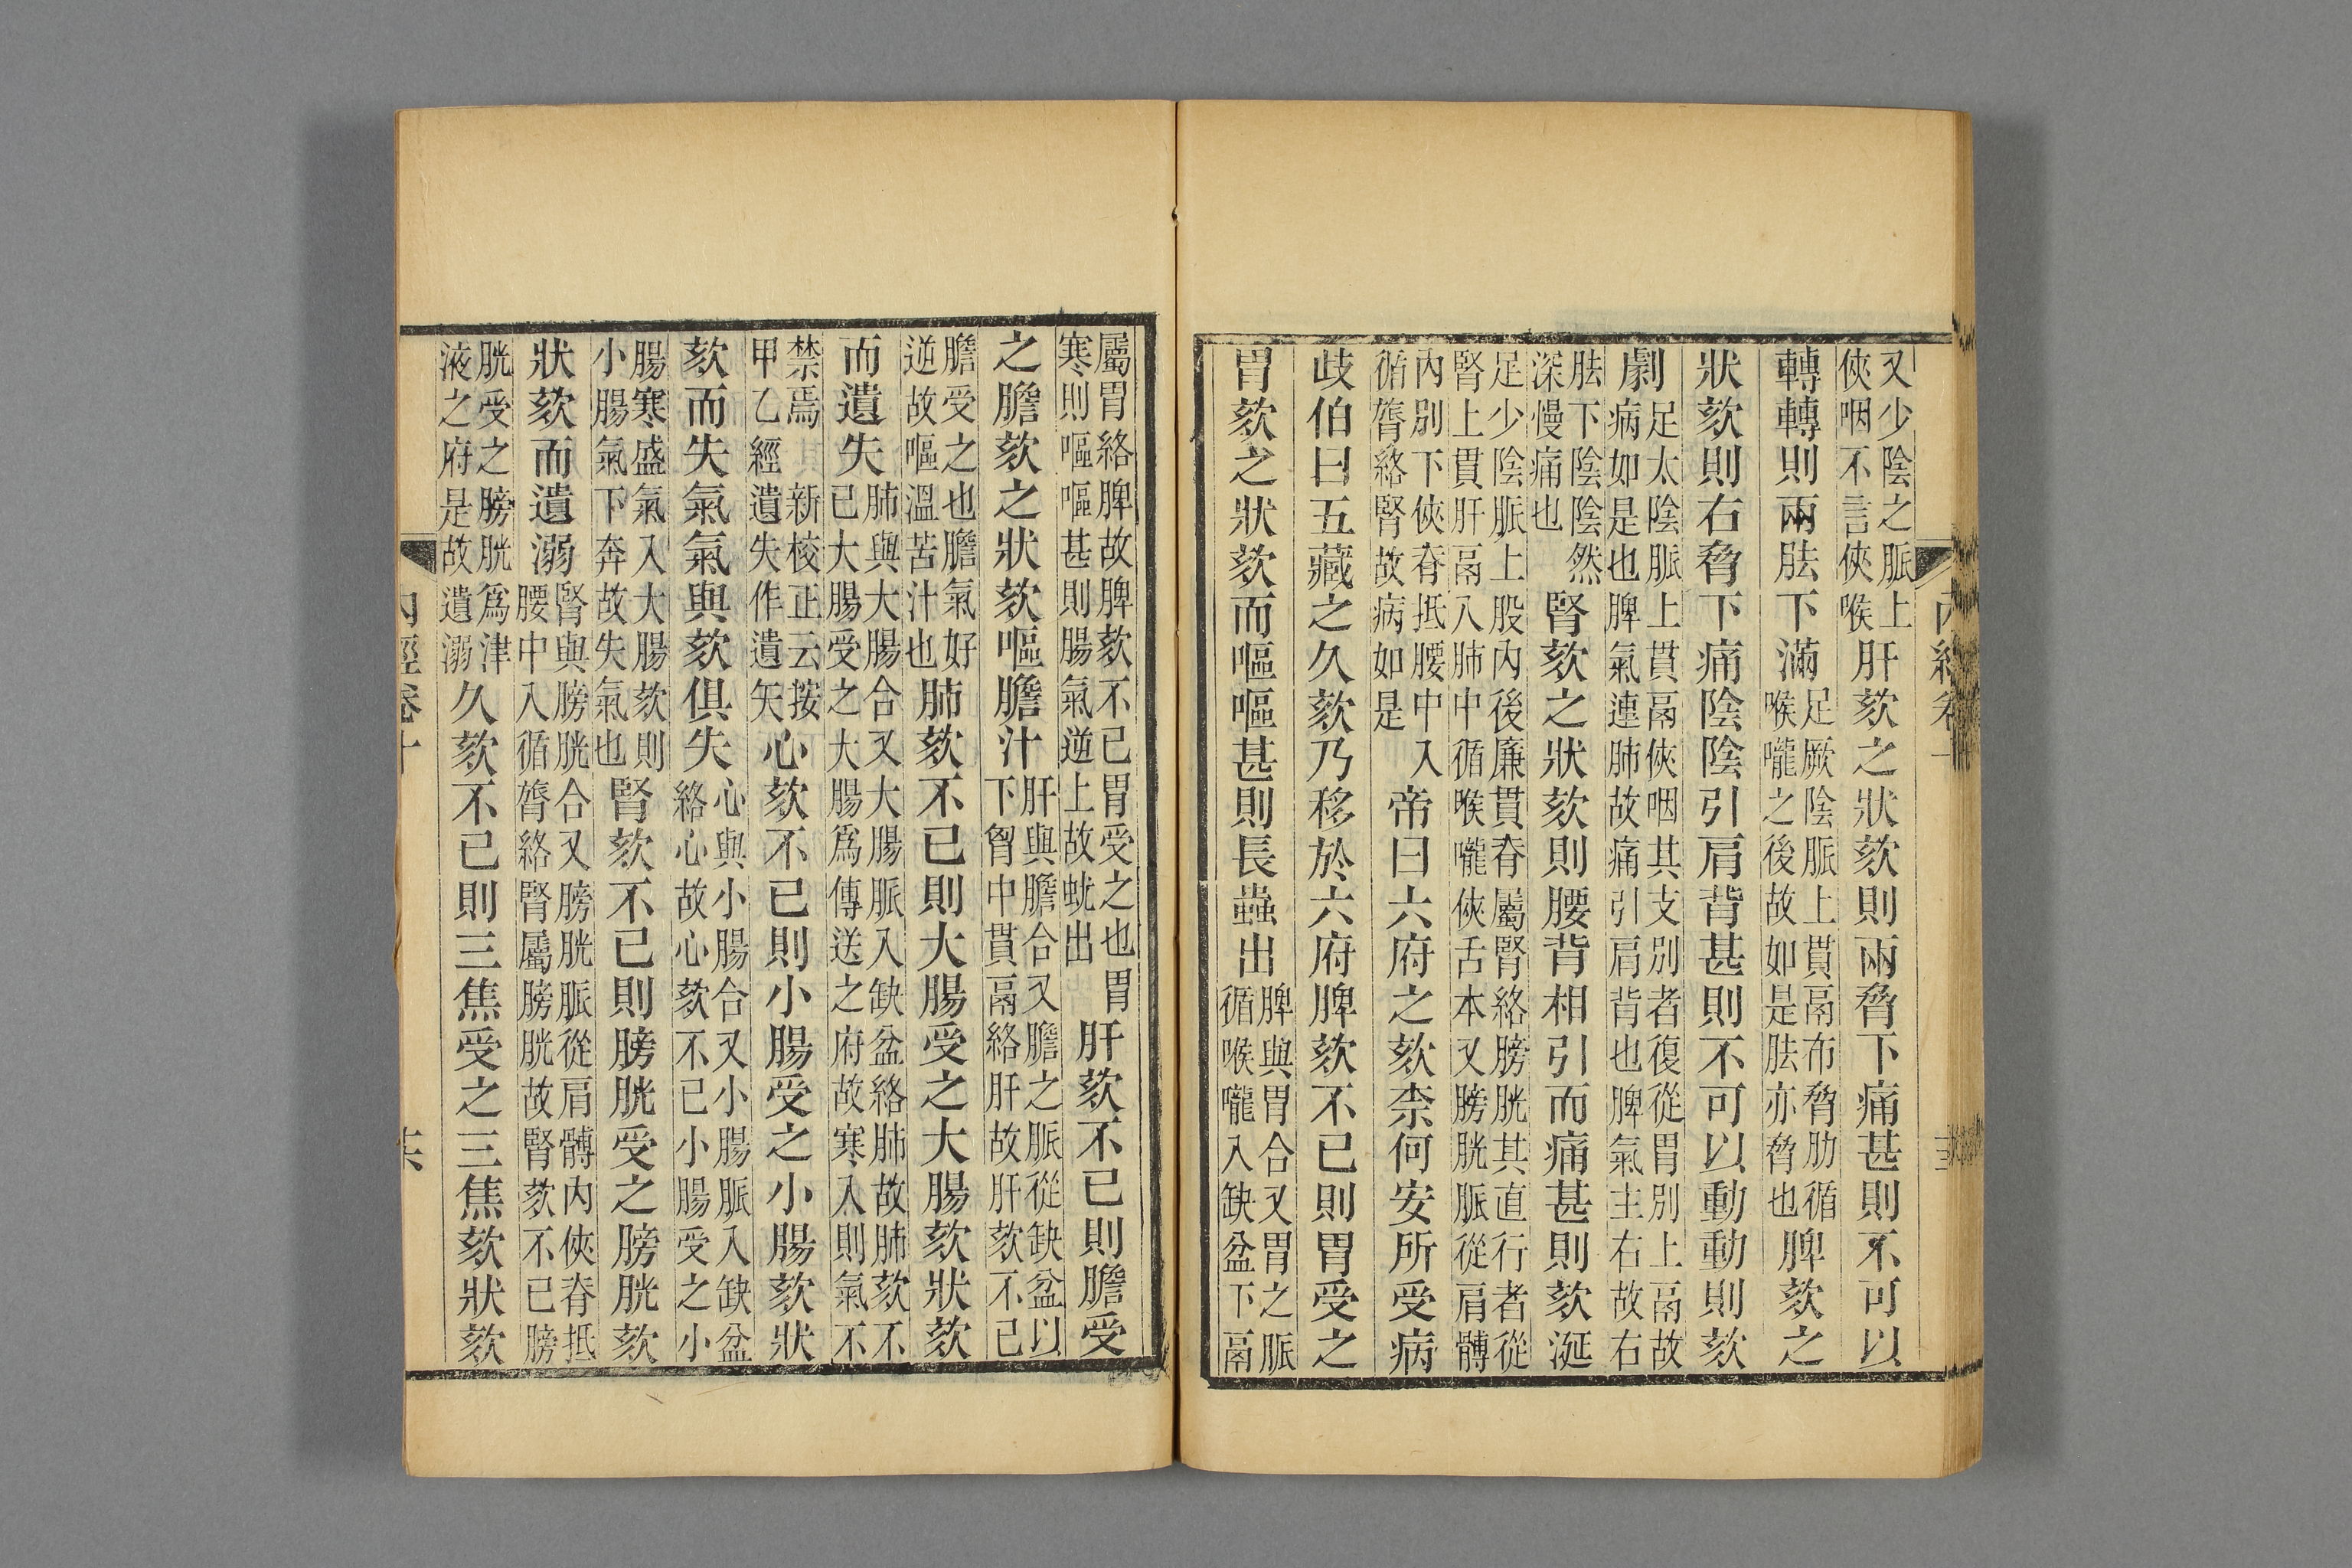 又少陰之脈上
俠咽不言俠喉
肝欬之狀欬則兩脅下痛甚則不可以
轉轉則兩胠下滿
足厥陰脈上貫鬲布脅肋循
喉嚨之後故如是胠亦脅也
脾欬之
狀欬則右脅下痛陰陰引肩背甚則不可以動動則欬
劇
足太陰脈上貫鬲俠咽其支別者復從胃別上鬲故
病如是也脾氣連肺故痛引肩背也脾氣主右故右
胠下陰陰然
深慢痛也
腎欬之狀欬則腰背相引而痛甚則欬涎
足少陰脈上股內後廉貫脊屬腎絡膀胱其直行者從
腎上貫肝鬲入肺中循喉嚨俠舌本又膀胱脈從肩髆
內別下俠脊抵腰中入
循膂絡腎故病如是
帝曰六府之欬柰何安所受病
歧伯曰五藏之久欬乃移於六府脾欬不已則胃受之
胃欬之狀欬而嘔嘔甚則長蟲出
脾與胃合又胃之脈
循喉嚨入缺盆下鬲
屬胃絡脾故脾欬不已胃受之也胃
寒則嘔嘔甚則腸氣逆上故蚘出
肝欬不已則膽受
之膽欬之狀欬嘔膽汁
肝與膽合又膽之脈從缺盆以
下胷中貫鬲絡肝故肝欬不已
膽受之也膽氣好
逆故嘔溫苦汁也
肺欬不已則大腸受之大腸欬狀欬
而遺失
肺與大腸合又大腸脈入缺盆絡肺故肺欬不
已大腸受之大腸爲傳送之府故寒入則氣不
禁焉 新校正云按
甲乙經遺失作遺矢
心欬不已則小腸受之小腸欬狀
欬而失氣氣與欬俱失
心與小腸合又小腸脈入缺盆
絡心故心欬不已小腸受之小
腸寒盛氣入大腸欬則
小腸氣下奔故失氣也
腎欬不已則膀胱受之膀胱欬
狀欬而遺溺
腎與膀胱合又膀胱脈從肩髆內俠脊抵
腰中入循膂絡腎屬膀胱故腎欬不已膀
胱受之膀胱爲津
液之府是故遺溺
久欬不已則三焦受之三焦欬狀欬
內經卷十